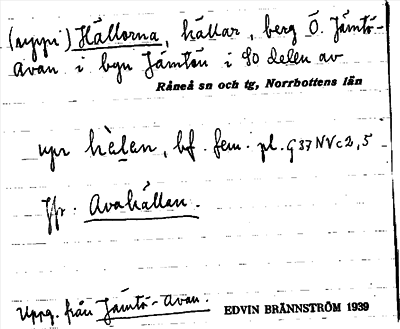 (uppi) Hällorna, hällar, berg Ö. Jämtö-
Avan i byn Jämtön i SO delen av
Råneå sn och tg, Norrbottens län
upr hèlen, bf. fem. pl. G 37 NV c 2, 5
Jfr. Avahällan.
Uppg. från Jämtö-Avan.
EDVIN BRÄNNSTRÖM 1939